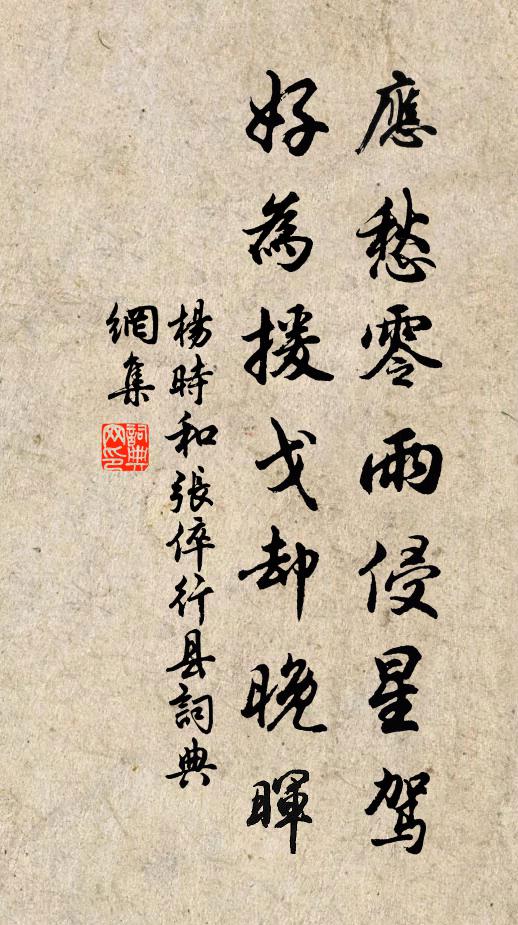 應愁零雨侵星驾
好為援戈却晚暉
楊時和張倅行县詞典
網集
詞典網印